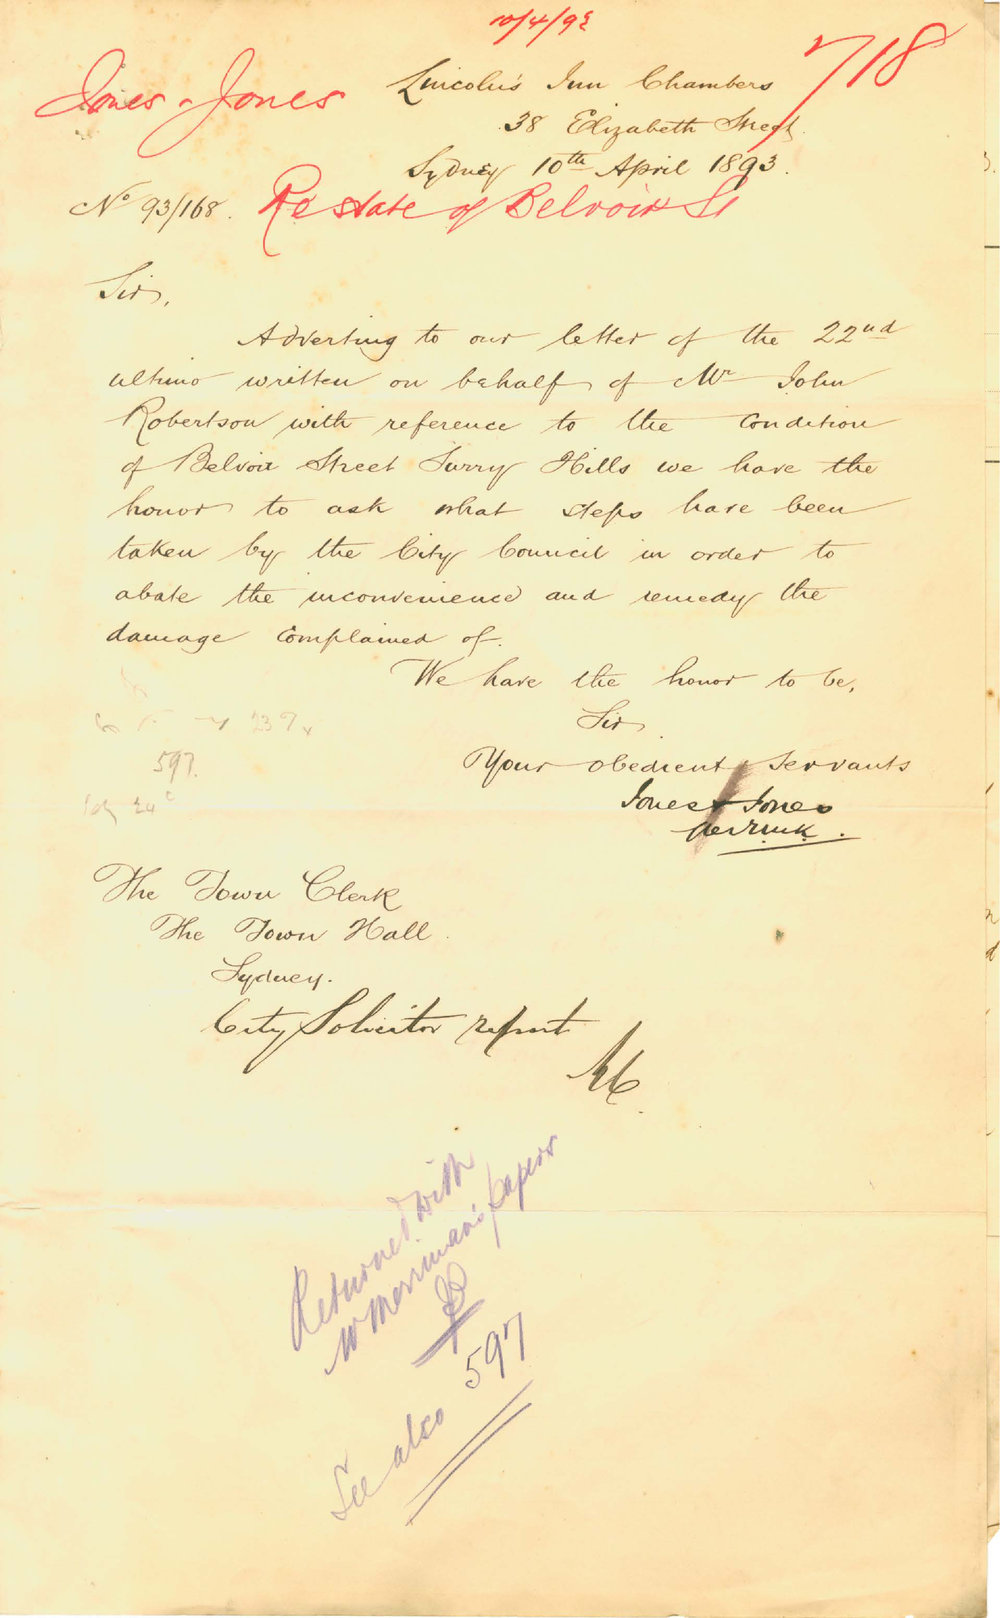 10/4/93
718
Jones & Jones
Lincoln's Inn Chambers
38 Elizabeth Street
Sydney 10th April 1893.
No 93/168.
Re state of Belvoir St
Sir,
Adverting to our letter of the 22nd
ultimo written on behalf of Mr John
Robertson with reference to the condition
of Belvoir Street Surry Hills we have the
honor to ask what steps have been
taken by the City Council in order to
abate the inconvenience and remedy the
damage complained of.
We have the honor to be,
Sir
Your obedient servants
Jones & Jones
597
The Town Clerk
The Town Hall
Sydney.
City Solicitor report
Returned with
Mr Merriman's papers
See also 597